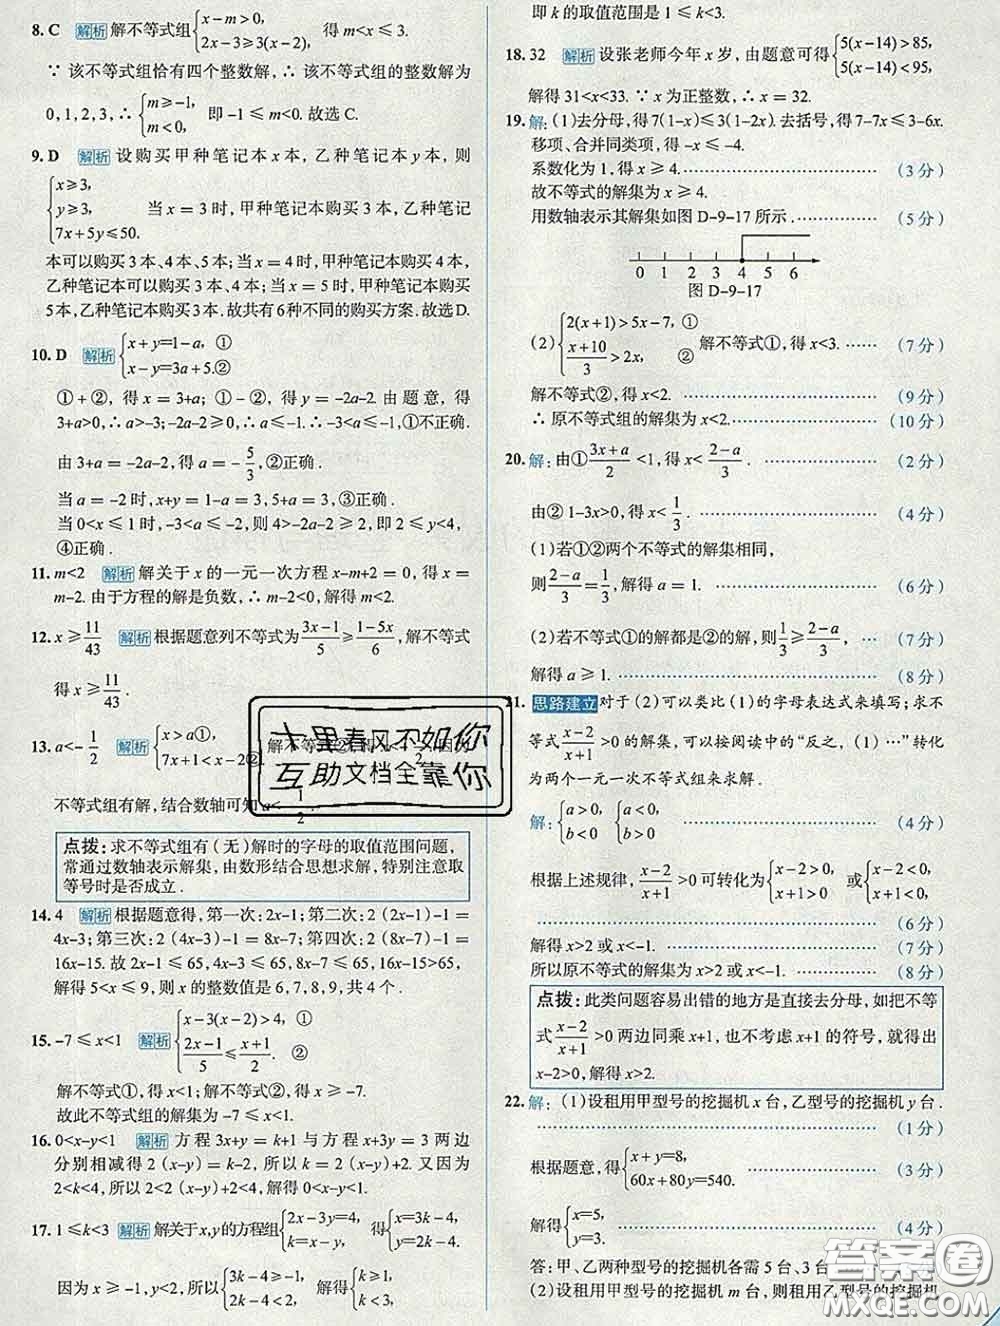 8. C 解析 解不等式组{x-m>0, 2x-3≥3(x-2), 得 m<x≤3.
∵ 该不等式组恰有四个整数解, ∴ 该不等式组的整数解为
0, 1, 2, 3, ∴ {m≥-1, m<0, 即 -1≤m<0. 故选 C.
9. D 解析 设购买甲种笔记本 x 本, 乙种笔记本 y 本, 则
{x≥3, y≥3, 7x+5y≤50. 当 x=3 时, 甲种笔记本购买 3 本, 乙种笔记
本可以购买 3 本、4 本、5 本; 当 x=4 时, 甲种笔记本购买 4 本,
乙种笔记本可以购买 3 本、4 本; 当 x=5 时, 甲种笔记本购买
5 本, 乙种笔记本购买 3 本. 故共有 6 种不同的购买方案. 故选 D.
10. D 解析 {x+y=1-a, ① x-y=3a+5. ②
①+②, 得 x=3+a; ①-②, 得 y=-2a-2. 由题意, 得
3+a>0, ∴ a>-3; -2a-2>0, ∴ a<-1. ∴ -3<a<-1, ①不正确.
由 3+a=-2a-2, 得 a=-5/3, ②正确.
当 a=-2 时, x+y=1-a=3, 5+a=3, ③正确.
当 0<x≤1 时, -3<a≤-2, 则 4>-2a-2≥2, 即 2≤y<4,
④正确.
11. m<2 解析 解关于 x 的一元一次方程 x-m+2=0, 得 x=
m-2. 由于方程的解是负数, ∴ m-2<0, 解得 m<2.
12. x≥11/43 解析 根据题意列不等式为 (3x-1)/5≥(1-5x)/6, 解不等式
得 x≥11/43.
13. a<-1/2 解析 {x>a ①, 7x+1<x-2 ②.
不等式组有解, 结合数轴可知 a<-1/2.
点拨: 求不等式组有(无)解时的字母的取值范围问题,
常通过数轴表示解集, 由数形结合思想求解, 特别注意取
等号时是否成立.
14. 4 解析 根据题意得, 第一次: 2x-1; 第二次: 2(2x-1)-1=
4x-3; 第三次: 2(4x-3)-1=8x-7; 第四次: 2(8x-7)-1=
16x-15. 故 2x-1≤65, 4x-3≤65, 8x-7≤65, 16x-15>65,
解得 5<x≤9, 则 x 的整数值是 6, 7, 8, 9, 共 4 个.
15. -7≤x<1 解析 {x-3(x-2)>4, ① (2x-1)/5≤(x+1)/2. ②
解不等式①, 得 x<1; 解不等式②, 得 x≥-7.
故此不等式组的解集为 -7≤x<1.
16. 0<x-y<1 解析 方程 3x+y=k+1 与方程 x+3y=3 两边
分别相减得 2(x-y)=k-2, 所以 k=2(x-y)+2. 又因为
2<k<4, 所以 2<2(x-y)+2<4, 解得 0<x-y<1.
17. 1≤k<3 解析 解关于 x, y 的方程组{2x-3y=4, k=x-y, 得{x=3k-4, y=2k-4.
因为 x≥-1, y<2, 所以{3k-4≥-1, 2k-4<2, 解得{k≥1, k<3,
即 k 的取值范围是 1≤k<3.
18. 32 解析 设张老师今年 x 岁, 由题意可得{5(x-14)>85, 5(x-14)<95,
解得 31<x<33. ∵ x 为正整数, ∴ x=32.
19. 解: (1) 去分母, 得 7(1-x)≤3(1-2x). 去括号, 得 7-7x≤3-6x.
移项、合并同类项, 得 -x≤-4.
系数化为 1, 得 x≥4. (3 分)
故不等式的解集为 x≥4.
用数轴表示其解集如图 D-9-17 所示. (5 分)
0 1 2 3 4 5 6
图 D-9-17
(2) {2(x+1)>5x-7, ① (x+10)/3>2x, ② 解不等式①, 得 x<3. (7 分)
解不等式②, 得 x<2. (9 分)
∴ 原不等式组的解集为 x<2. (10 分)
20. 解: 由① (3x+a)/2<1, 得 x<(2-a)/3. (2 分)
由② 1-3x>0, 得 x<1/3. (4 分)
(1) 若①②两个不等式的解集相同,
则 (2-a)/3=1/3, 解得 a=1. (6 分)
(2) 若不等式①的解都是②的解, 则 1/3≥(2-a)/3, (7 分)
解得 a≥1. (8 分)
21. 思路建立 对于(2)可以类比(1)的字母表达式来填写; 求不
等式 (x-2)/(x+1)>0 的解集, 可以按阅读中的“反之, (1)…”转化
为两个一元一次不等式组来求解.
解: {a>0, b<0 {a<0, b>0 (4 分)
根据上述规律, (x-2)/(x+1)>0 可转化为{x-2>0, x+1>0 或{x-2<0, x+1<0.
(6 分)
解得 x>2 或 x<-1. (7 分)
所以原不等式的解集为 x>2 或 x<-1. (8 分)
点拨: 此类问题容易出错的地方是直接去分母, 如把不等
式 (x-2)/(x+1)>0 两边同乘 x+1, 也不考虑 x+1 的符号, 就得出
x-2>0, 解得 x>2.
22. 解: (1) 设租用甲型号的挖掘机 x 台, 乙型号的挖掘机 y 台.
(1 分)
根据题意, 得{x+y=8, 60x+80y=540. (3 分)
解得{x=5, y=3. (4 分)
答: 甲、乙两种型号的挖掘机各需 5 台、3 台
(2) 设租用甲型号的挖掘机 m 台, 则租用乙型号的挖掘机
十里春风不如你
互助文档全靠你
答案圈
MXQE.COM